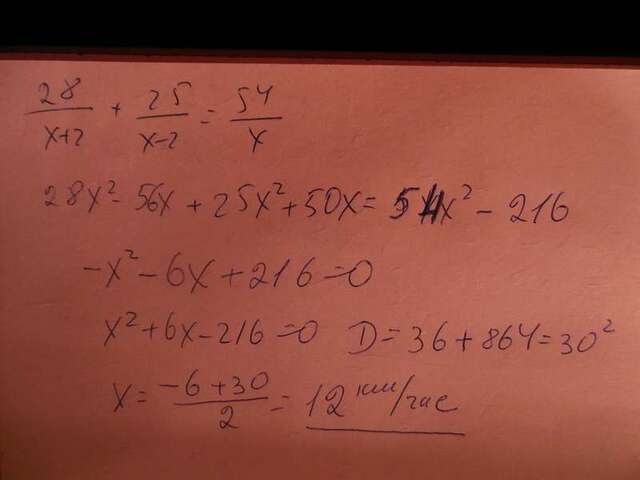 28/(x+2) + 25/(x-2) = 54/x
28x² - 56x + 25x² + 50x = 54x² - 216
-x² - 6x + 216 = 0
x² + 6x - 216 = 0 D = 36 + 864 = 30²
x = (-6 + 30)/2 = 12 км/час